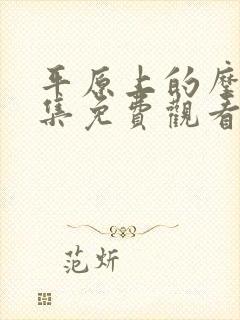 平原上的摩
集免費觀看
范炘